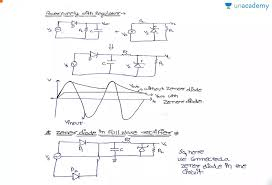 unacademy
Power supply with regulator →
Vs
C
RL
Vo
+
Vs
RL
Vs
D
C
RL
V
Vout without zener diode
Vout with
zener diode.
t
Vinput
zener diode in full wave rectifier
Vs
D1
C
RL
D2
So, here
we connected a
zener diode in the
circuit